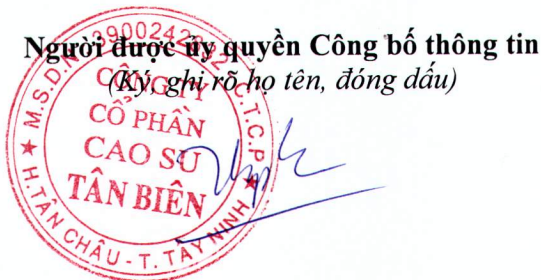 Người được ủy quyền Công bố thông tin
(Ký, ghi rõ họ tên, đóng dấu)
CÔNG TY
CỔ PHẦN
CAO SU
TÂN BIÊN
H. TÂN CHÂU - T. TÂY NINH